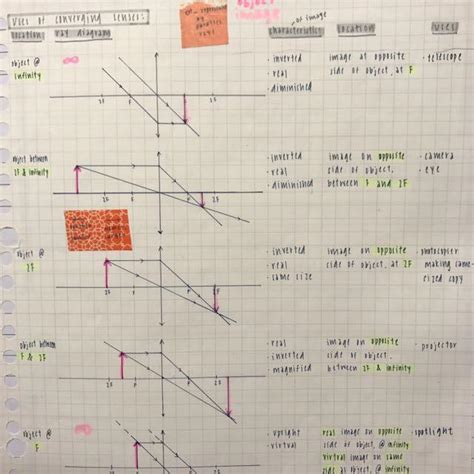 Uses of converging lenses:
object
image
location: ray diagram characteristics of image location uses
object @
infinity
∞
2F
F
2F
· inverted
· real
· diminished
image at opposite
side of object, at F
· telescope
object between
2F & infinity
2F
F
2F
· inverted
· real
· diminished
image on opposite
side of object,
between F and 2F
· camera
· eye
object @
2F
2F
2F
· inverted
· real
· same size
image on opposite
side of object, at 2F
· photocopier
making same-
sized copy
object between
F & 2F
2F
2F
· real
· inverted
· magnified
image on opposite
side of object,
between 2F & infinity
· projector
object @
F
2F
2F
· upright
· virtual
real image on opposite
side of object, @ infinity
virtual image on same
side as object @ infinity
· spotlight